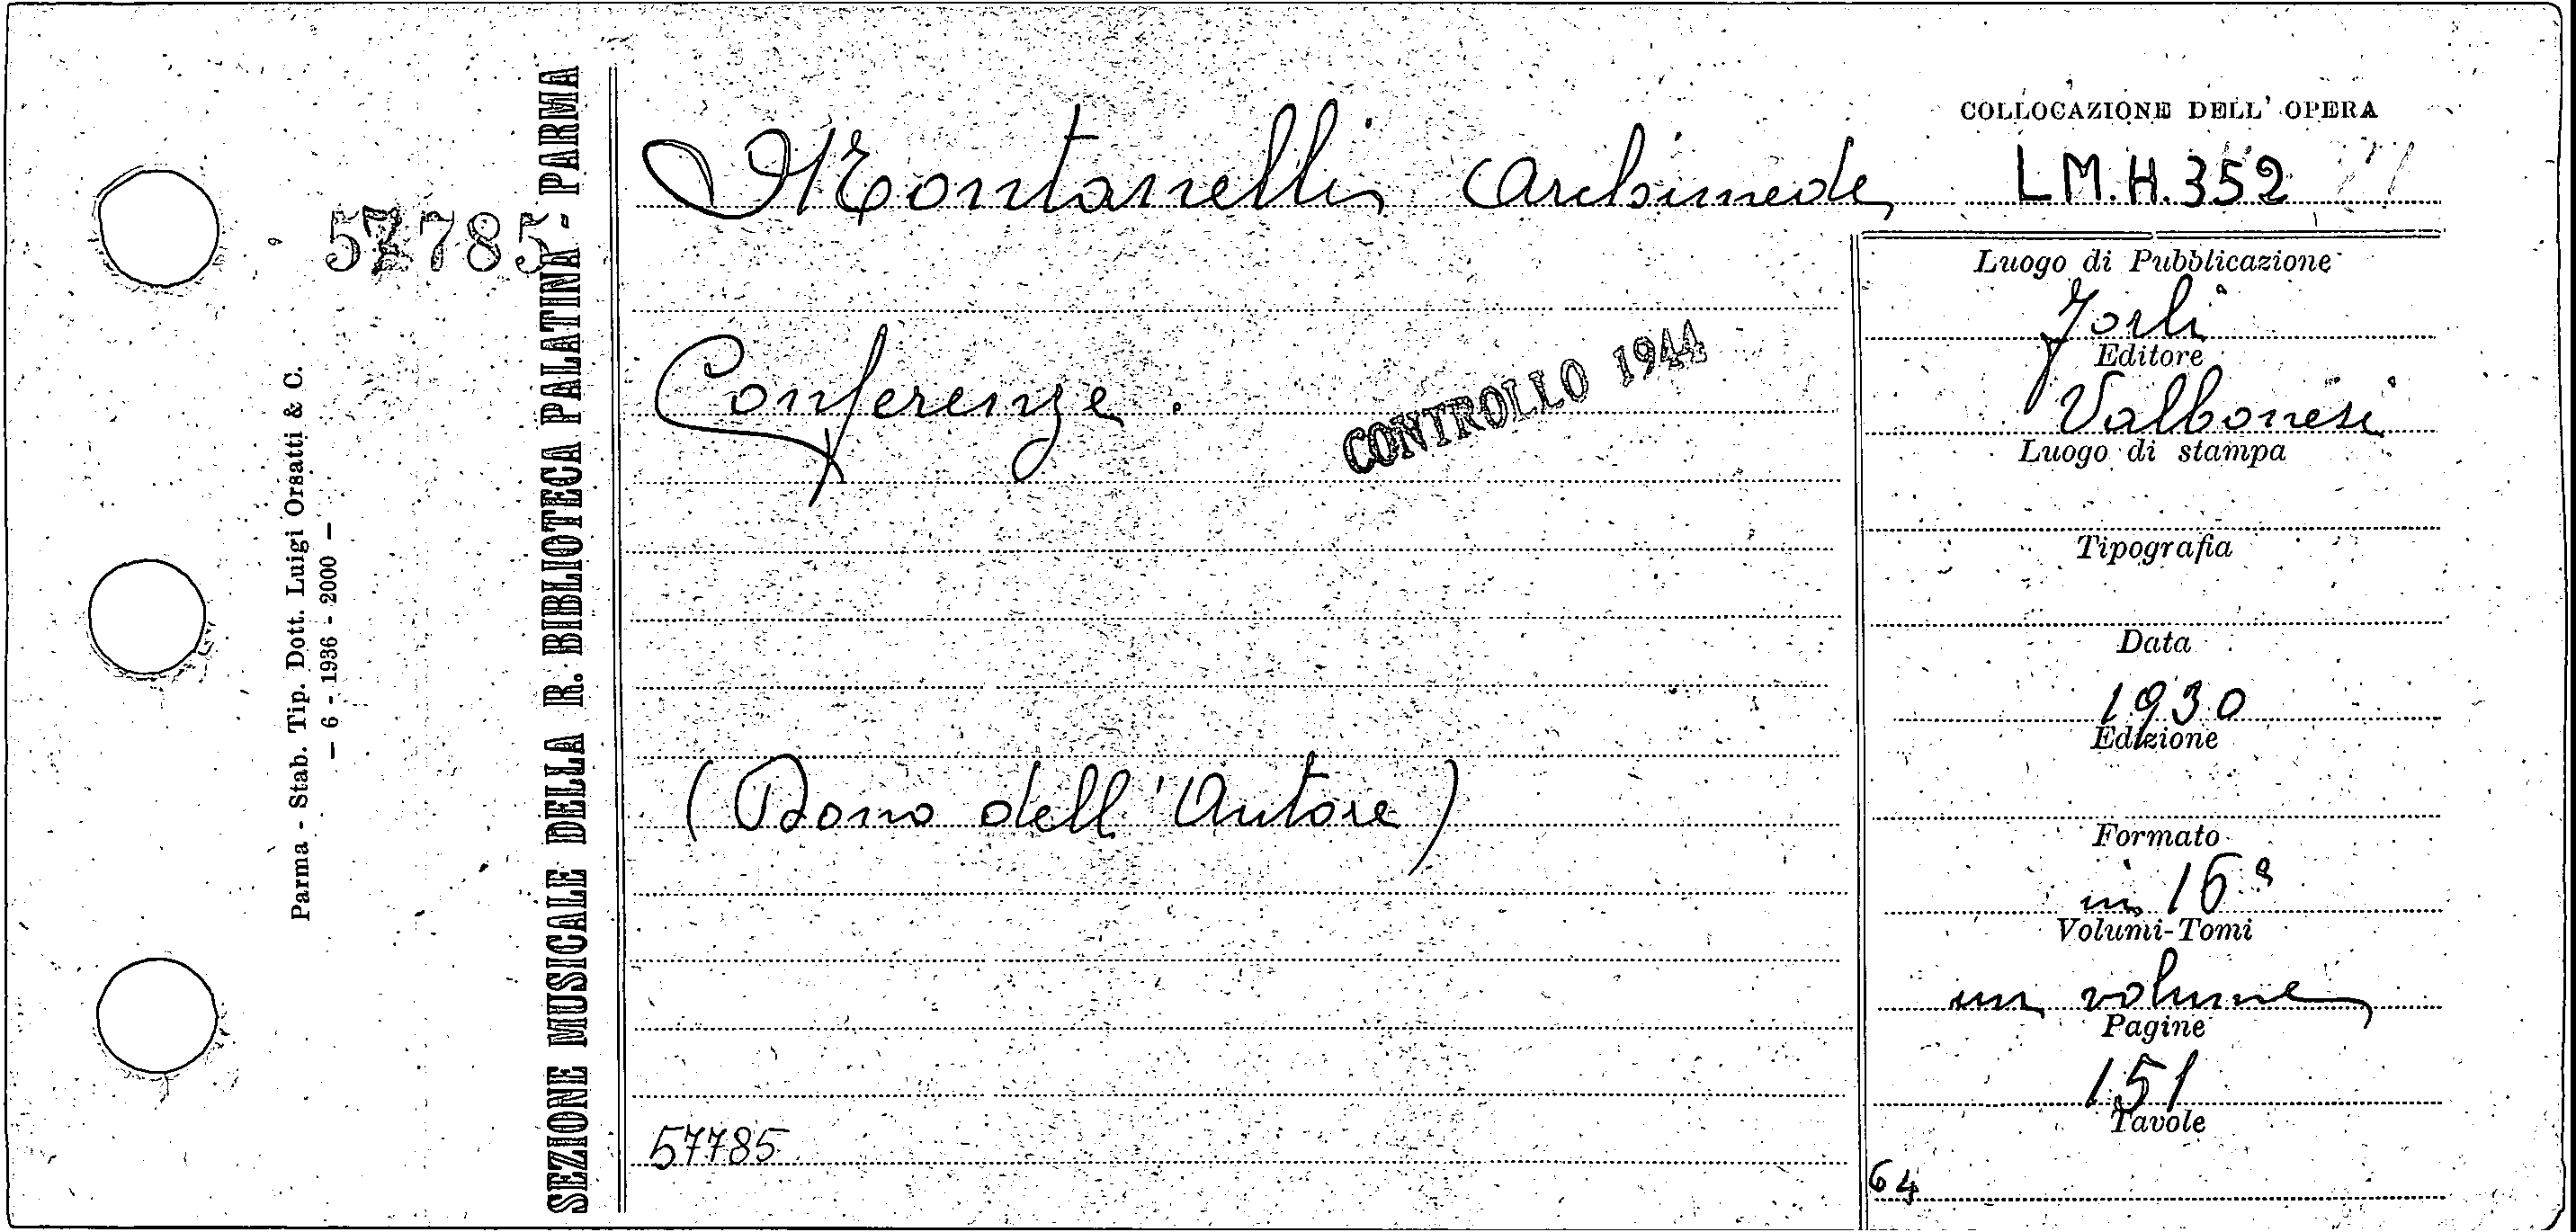 57785
Parma - Stab. Tip. Dott. Luigi Orsatti & C.
— 6 - 1936 - 2000 —
SEZIONE MUSICALE DELLA R. BIBLIOTECA PALATINA - PARMA
Montanelli Archimede
Conferenze.
CONTROLLO 1944
(Dono dell'Autore)
57785
COLLOCAZIONE DELL' OPERA
L.M.H.352
Luogo di Pubblicazione
Forlì
Editore
Valbonesi
Luogo di stampa
Tipografia
Data
1930
Edizione
Formato
in 16º
Volumi-Tomi
un volume
Pagine
151
Tavole
64